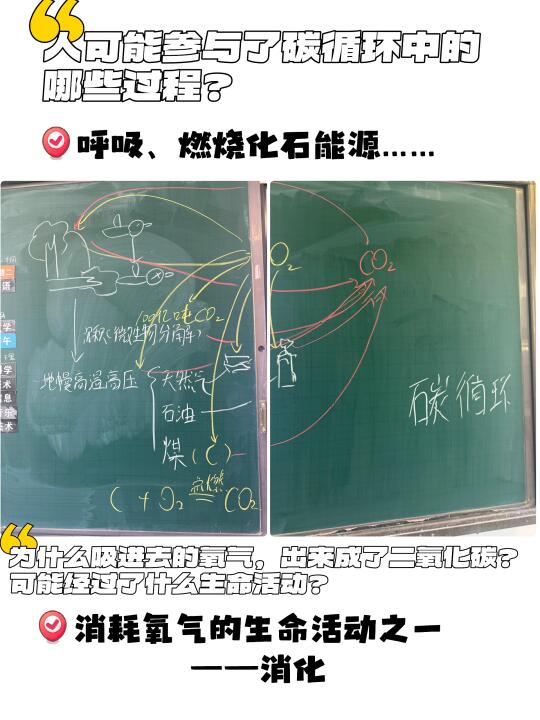 人可能参与了碳循环中的
哪些过程？
呼吸、燃烧化石能源……
O₂
CO₂
100亿吨CO₂
沉积(微生物分解)
地幔高温高压
天然气
石油
煤(C)
C + O₂ 点燃 CO₂
碳循环
为什么吸进去的氧气，出来成了二氧化碳？
可能经过了什么生命活动？
消耗氧气的生命活动之一
——消化